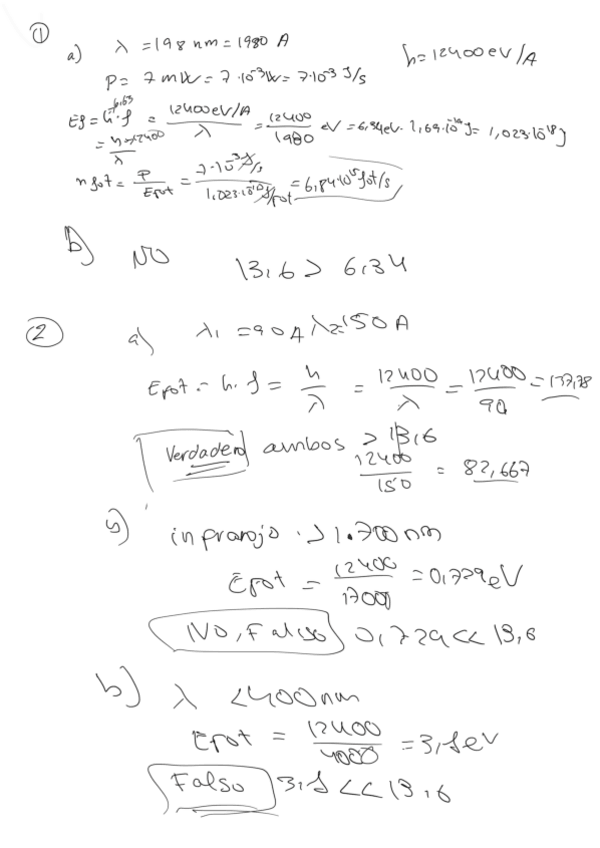 ①
a) λ = 198 nm = 1980 A
h = 12400 eV/A
P = 7 mW = 7·10⁻³W = 7·10⁻³ J/s
Ef = h·f = 12400eV/A / λ = 12400/1980 eV = 6,34eV · 1,69·10⁻¹⁹J = 1,023·10⁻¹⁸J
n fot = P/Efot = 7·10⁻³J/s / 1,023·10⁻¹⁸J/fot = 6,84·10¹⁵ fot/s
b) NO 13,6 > 6,34
②
a) λ₁ = 90A λ₂=150A
Efot = h·f = h/λ = 12400/λ = 12400/90 = 137,78
Verdadero ambos > 13,6
12400/150 = 82,667
infrarojo > 1.700 nm
Efot = 12400/17000 = 0,729eV
NO, Falso 0,729 << 13,6
b) λ < 400nm
Efot = 12400/4000 = 3,1eV
Falso 3,1 << 13,6